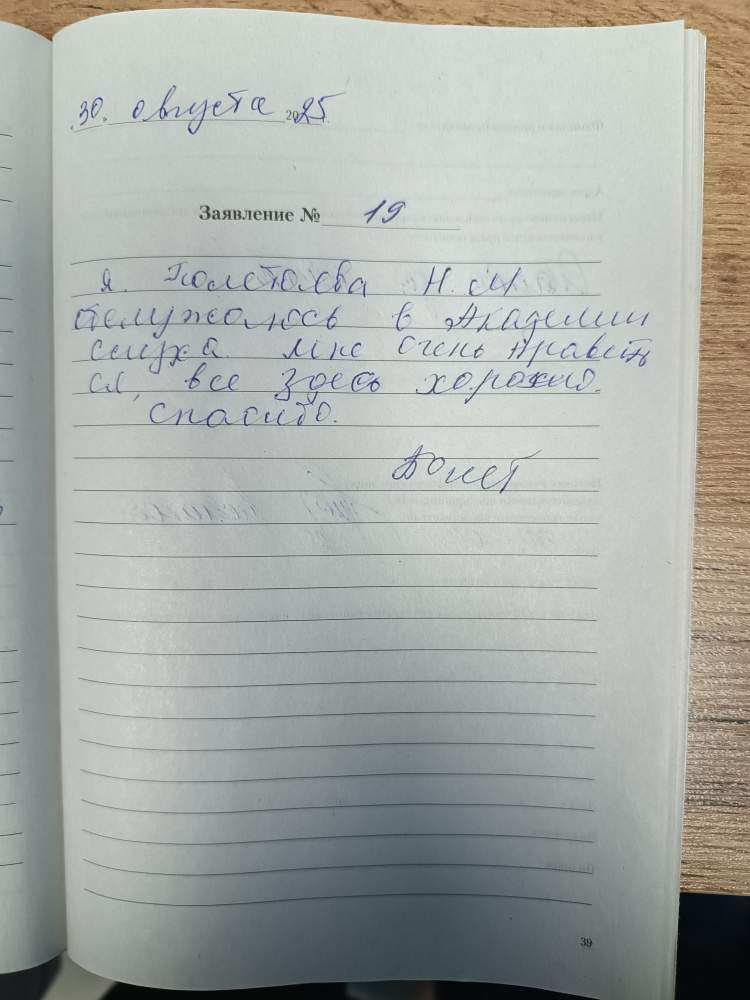 30. августа 2025
Заявление № 19
я. Н. М
обслужолюсь в Академии
слуха. мне очень нравить
ся, все здесь хорошо.
спасибо.
39